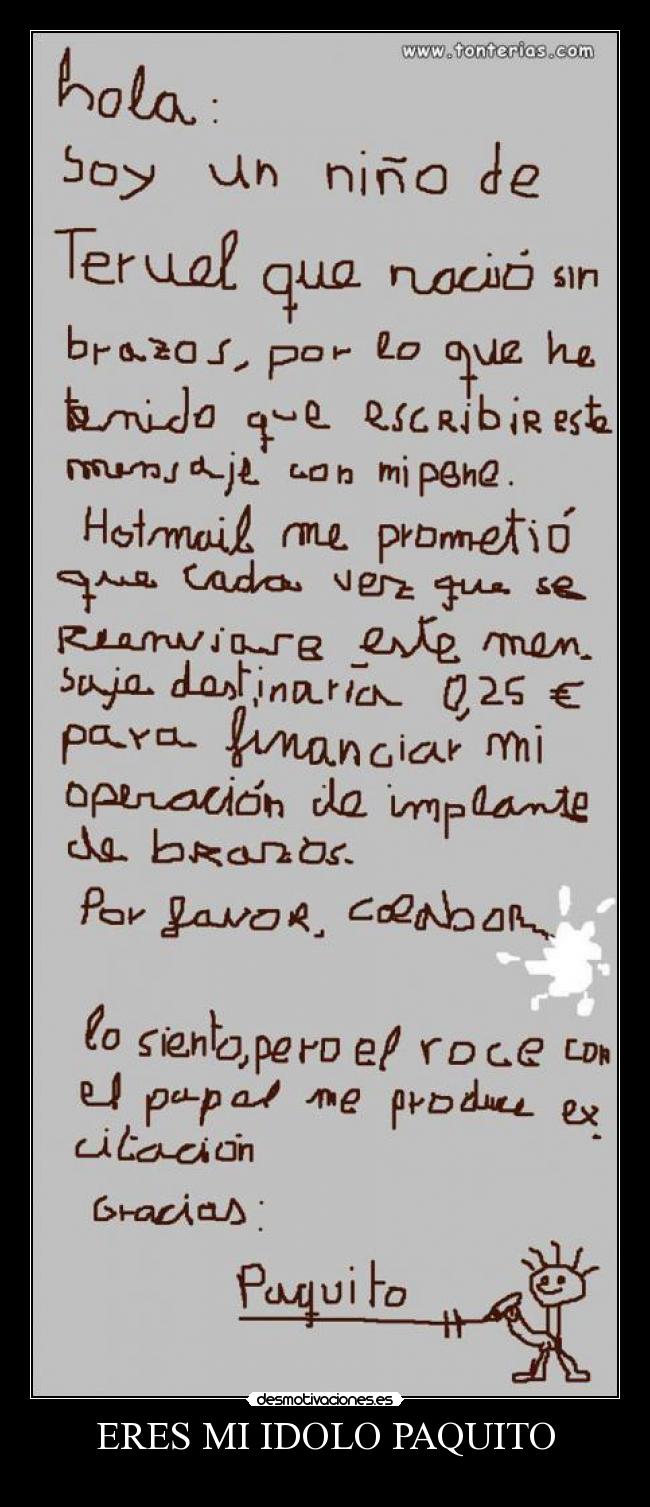 www.tonterias.com
hola:
Soy un niño de
Teruel que nació sin
brazos, por lo que he
tenido que escribir este
mensaje con mi pene.
Hotmail me prometió
que cada vez que se
reenviara este men-
saje destinaría 0,25 €
para financiar mi
operación de implante
de brazos.
Por favor,
lo siento, pero el roce con
el papel me produce ex-
citación
Gracias:
Paquito
desmotivaciones.es
ERES MI IDOLO PAQUITO